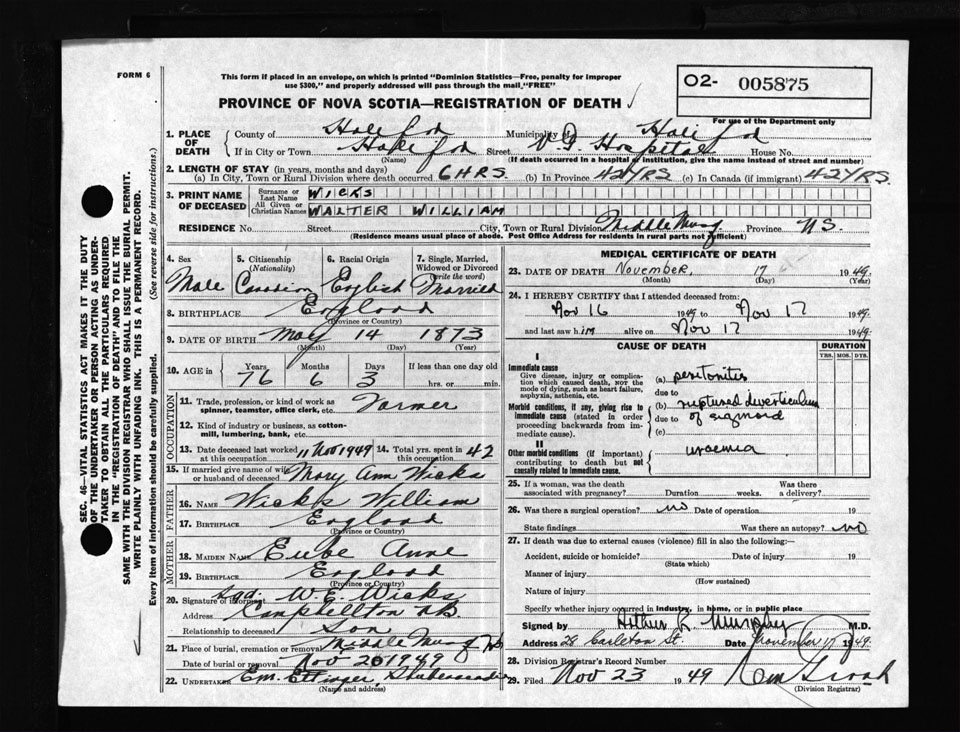 FORM 6
This form if placed in an envelope, on which is printed "Dominion Statistics—Free, penalty for improper
use $300," and properly addressed will pass through the mail "FREE"
PROVINCE OF NOVA SCOTIA—REGISTRATION OF DEATH ✓
O2- 005875
For use of the Department only
1. PLACE OF DEATH { County of Halifax Municipality of Halifax
If in City or Town Halifax (Name) Street V.G. Hospital House No.
(If death occurred in a hospital or institution, give the name instead of street and number)
2. LENGTH OF STAY (in years, months and days)
(a) In City, Town or Rural Division where death occurred 6 HRS. (b) In Province 42 YRS (c) In Canada (if immigrant) 42 YRS.
3. PRINT NAME OF DECEASED { Surname or Last Name WICKS
All Given or Christian Names WALTER WILLIAM
RESIDENCE No. Street City, Town or Rural Division Middle Musq Province N.S.
(Residence means usual place of abode. Post Office Address for residents in rural parts not sufficient)
4. Sex Male
5. Citizenship (Nationality) Canadian
6. Racial Origin English
7. Single, Married, Widowed or Divorced (write the word) Married
8. BIRTHPLACE England
(Province or Country)
9. DATE OF BIRTH May 14 1873
(Month) (Day) (Year)
10. AGE in { Years 76 Months 6 Days 3 If less than one day
hrs. or min.
OCCUPATION
11. Trade, profession, or kind of work as
spinner, teamster, office clerk, etc. Farmer
12. Kind of industry or business, as cotton-
mill, lumbering, bank, etc.
13. Date deceased last worked at this occupation 11 Nov 1949 14. Total yrs. spent in this occupation 42
15. If married give name of wife or husband of deceased Mary Ann Wicks
FATHER
16. Name Wicks William
17. Birthplace England
(Province or Country)
MOTHER
18. Maiden Name Anne
19. Birthplace England
(Province or Country)
20. Signature of informant Sgd. W.E. Wicks
Address Campbellton N.B.
Relationship to deceased Son
21. Place of burial, cremation or removal Middle Musq NS
Date of burial or removal Nov 20 1949
22. Undertaker Em. Ettinger, Shubenacadie
(Name and address)
MEDICAL CERTIFICATE OF DEATH
23. DATE OF DEATH November, 17 1949.
(Month) (Day) (Year)
24. I HEREBY CERTIFY that I attended deceased from:
Nov 16 1949 to Nov 17 1949.
and last saw him alive on Nov 17 1949.
CAUSE OF DEATH
DURATION
YRS. MOS. DYS.
I
Immediate cause
Give disease, injury or complica-
tion which caused death, NOT the
mode of dying, such as heart failure,
asphyxia, asthenia, etc.
(a) peritonitis
due to
Morbid conditions, if any, giving rise to
immediate cause (stated in order
proceeding backwards from im-
mediate cause).
(b) ruptured diverticulum
due to of sigmoid
(c)
II
Other morbid conditions (if important)
contributing to death but not
causally related to immediate cause.
uraemia
25. If a woman, was the death
associated with pregnancy? Duration weeks. Was there a delivery?
26. Was there a surgical operation? no Date of operation 19
State findings Was there an autopsy? no
27. If death was due to external causes (violence) fill in also the following:—
Accident, suicide or homicide? Date of injury 19
(State which)
Manner of injury
(How sustained)
Nature of injury
Specify whether injury occurred in industry, in home, or in public place
Signed by Arthur L Murphy M.D.
Address 28 Carleton St. Date November 17 1949.
28. Division Registrar's Record Number
29. Filed Nov 23 1949
(Division Registrar)
SEC. 46—VITAL STATISTICS ACT MAKES IT THE DUTY
OF THE UNDERTAKER OR PERSON ACTING AS UNDER-
TAKER TO OBTAIN ALL THE PARTICULARS REQUIRED
IN THE "REGISTRATION OF DEATH" AND TO FILE THE
SAME WITH THE DIVISION REGISTRAR WHO SHALL ISSUE THE BURIAL PERMIT.
WRITE PLAINLY WITH UNFADING INK. THIS IS A PERMANENT RECORD.
Every item of information should be carefully supplied. (See reverse side for instructions.)